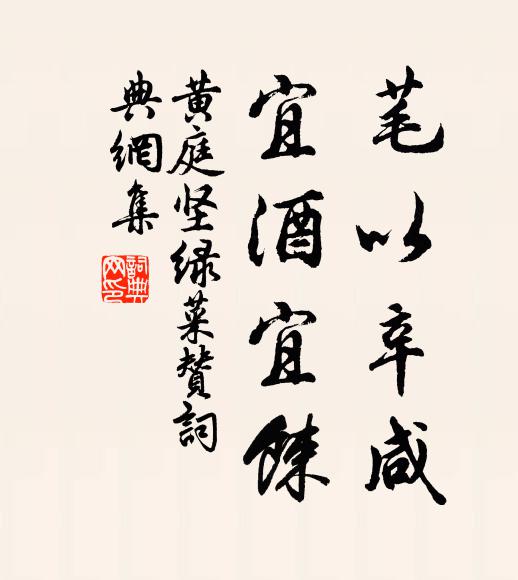 芼以辛咸
宜酒宜餗
黄庭坚绿菜赞詞
典網集
詞典網印